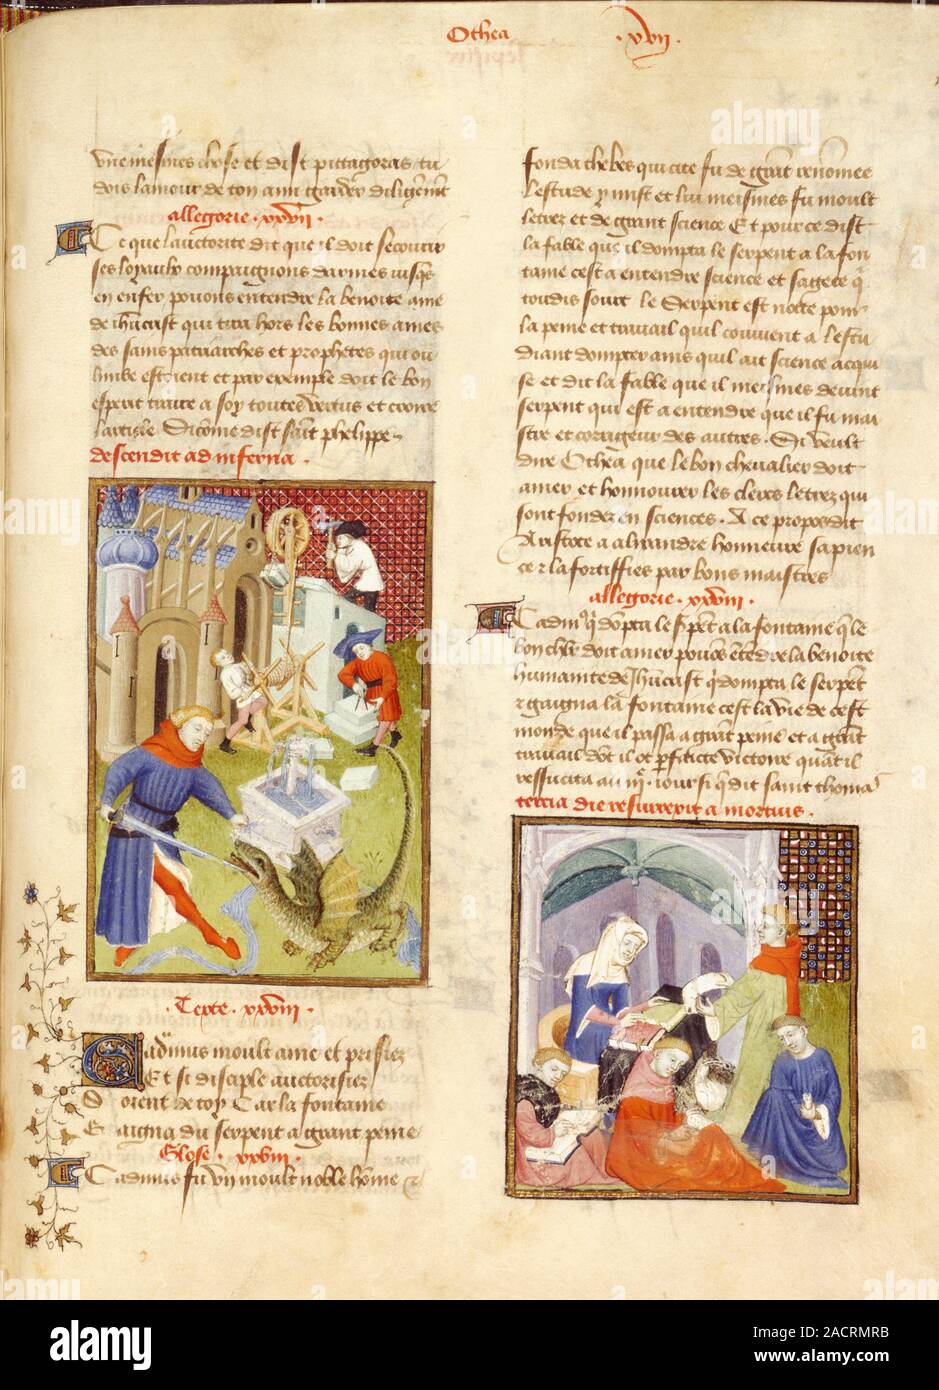 Othea .xvii.
une mesmes chose et dist pittagoras tu
dois lamour de ton ami garder diligemment
allegorie .xxvii.
Ce que lauctorite dit que il doit secourir
ses loyaulx compaignons darmes iusqs
en enfer pouons entendre la benoite ame
de ihucrist qui tira hors les bonnes ames
des sains patriarches et prophetes qui ou
limbe estoient et par exemple doit le bon
esperit traire a soy toutes vertus et croire
larticle Si come dist saint phelippe
descendit ad inferna .
Texte .xxviii.
Cadmus moult aime et prisiez
Et si disciple auctorisiez
Soient de toy Car la fontaine
Gaigna du serpent a grant peine
Glose .xxviii.
Cadmus fu un moult noble home et
fonda thebes qui cite fu de grant renomee
lestude y mist et lui meismes fu moult
lettrez et de grant science Et pource dist
la fable que il dompta le serpent a la fon
taine cest a entendre science et sagece q
toudis sourt le Serpent est notte pour
la peine et travail quil convient a lestu
diant dompter ains quil ait science acqui
se et dit la fable que il meismes devint
serpent qui est a entendre que il fu mai
stre et corrigeur des autres . Si veult
dire Othea que le bon chevalier doit
amer et honnourer les clers lettrez qui
sont fondez en sciences . A ce propos dit
Aristote a alixandre honneure sapien
ce et la fortiffies par bons maistres
allegorie .xxviii.
Cadmus q dompta le serpent a la fontaine q le
bon chlr doit amer pouos entendre la benoite
humanite de Ihucrist q dompta le serpet
et gaigna la fontaine cest la vie de cest
monde que il passa a grat peine et a grat
travail dot il ot perfaicte victoire quat il
ressucita au iii. iour si q dit saint thomas
tercia die resurrexit a mortuis .
alamy
Image ID: 2ACRMRB
www.alamy.com